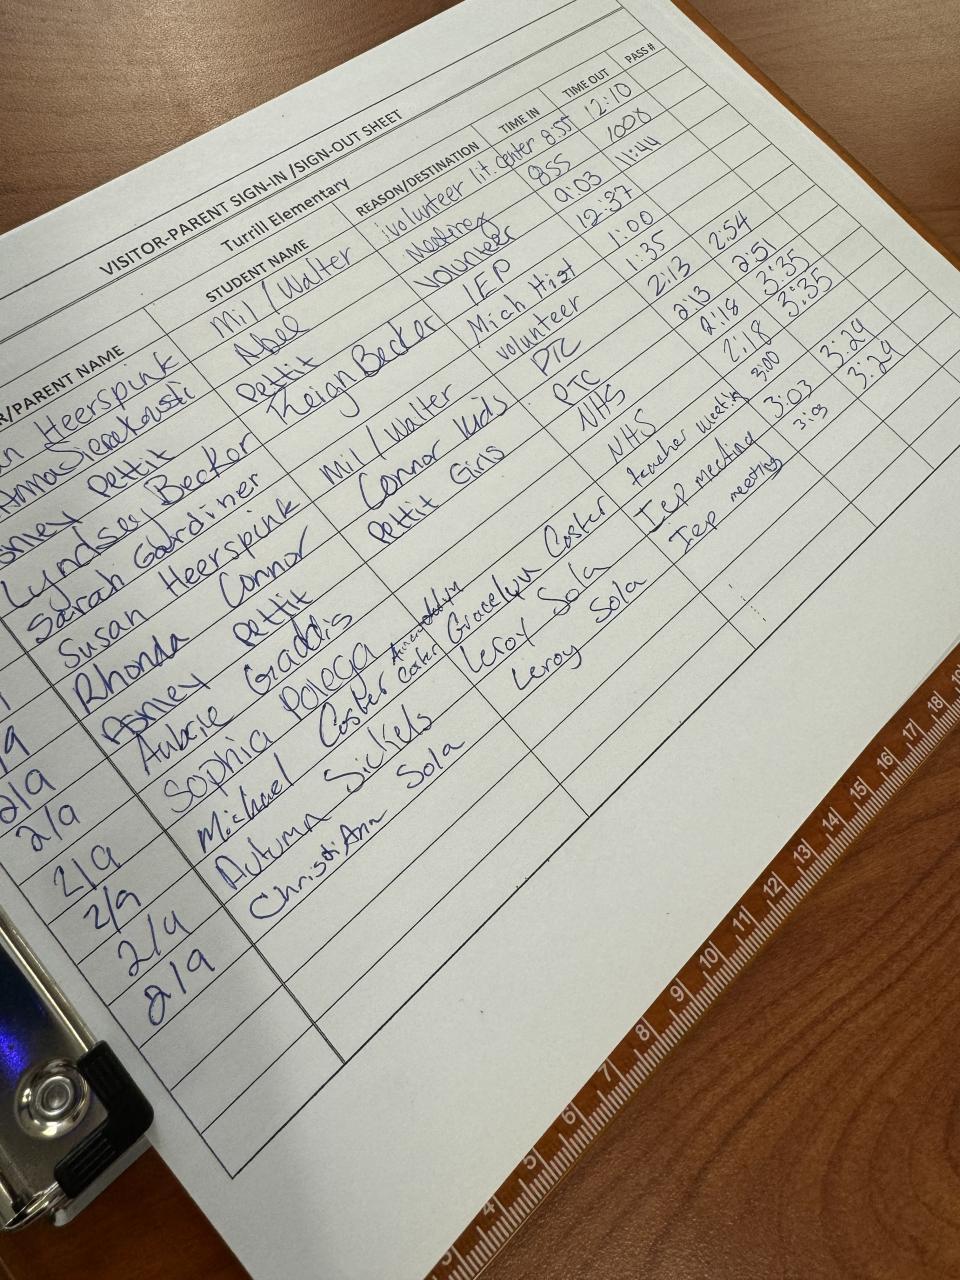 VISITOR-PARENT SIGN-IN /SIGN-OUT SHEET
Turrill Elementary
R/PARENT NAME STUDENT NAME REASON/DESTINATION TIME IN TIME OUT PASS #
an Heerspink Mil / Walter volunteer lit. center 8:55 12:10
Anna Sierakowski Abel 855 1008
Pettit Pettit Volunteer 9:03 11:44
Lyndsey Becker Reign Becker IEP 12:37
Sarah Gardiner Mich Hist 1:00
Susan Heerspink Mil / Walter volunteer 1:35 2:54
Rhonda Connor Connor kids PTC 2:13 2:51
Ashley Pettit Pettit Girls PTC 2:13 3:35
2/9 Aubrie Gaddis NHS 2:18 3:35
2/9 Sophia Polega NHS 2:18
2/9 Michael Coster Coster Gracelyn Coster teacher meeting 3:00
2/9 Autumn Sickels Leroy Sola Iep meeting 3:03 3:29
2/9 ChristiAnn Sola Leroy Sola Iep meeting 3:03 3:29
2/9
4 5 6 7 8 9 10 11 12 13 14 15 16 17 18